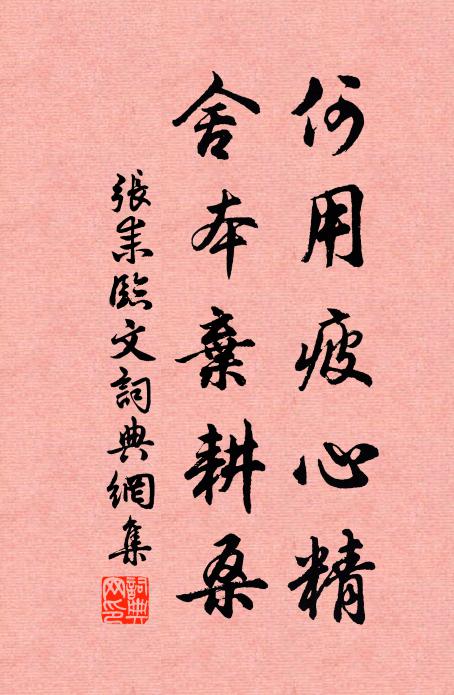 何用疲心精
舍本棄耕桑
張耒臨文詞典網集
詞典網印